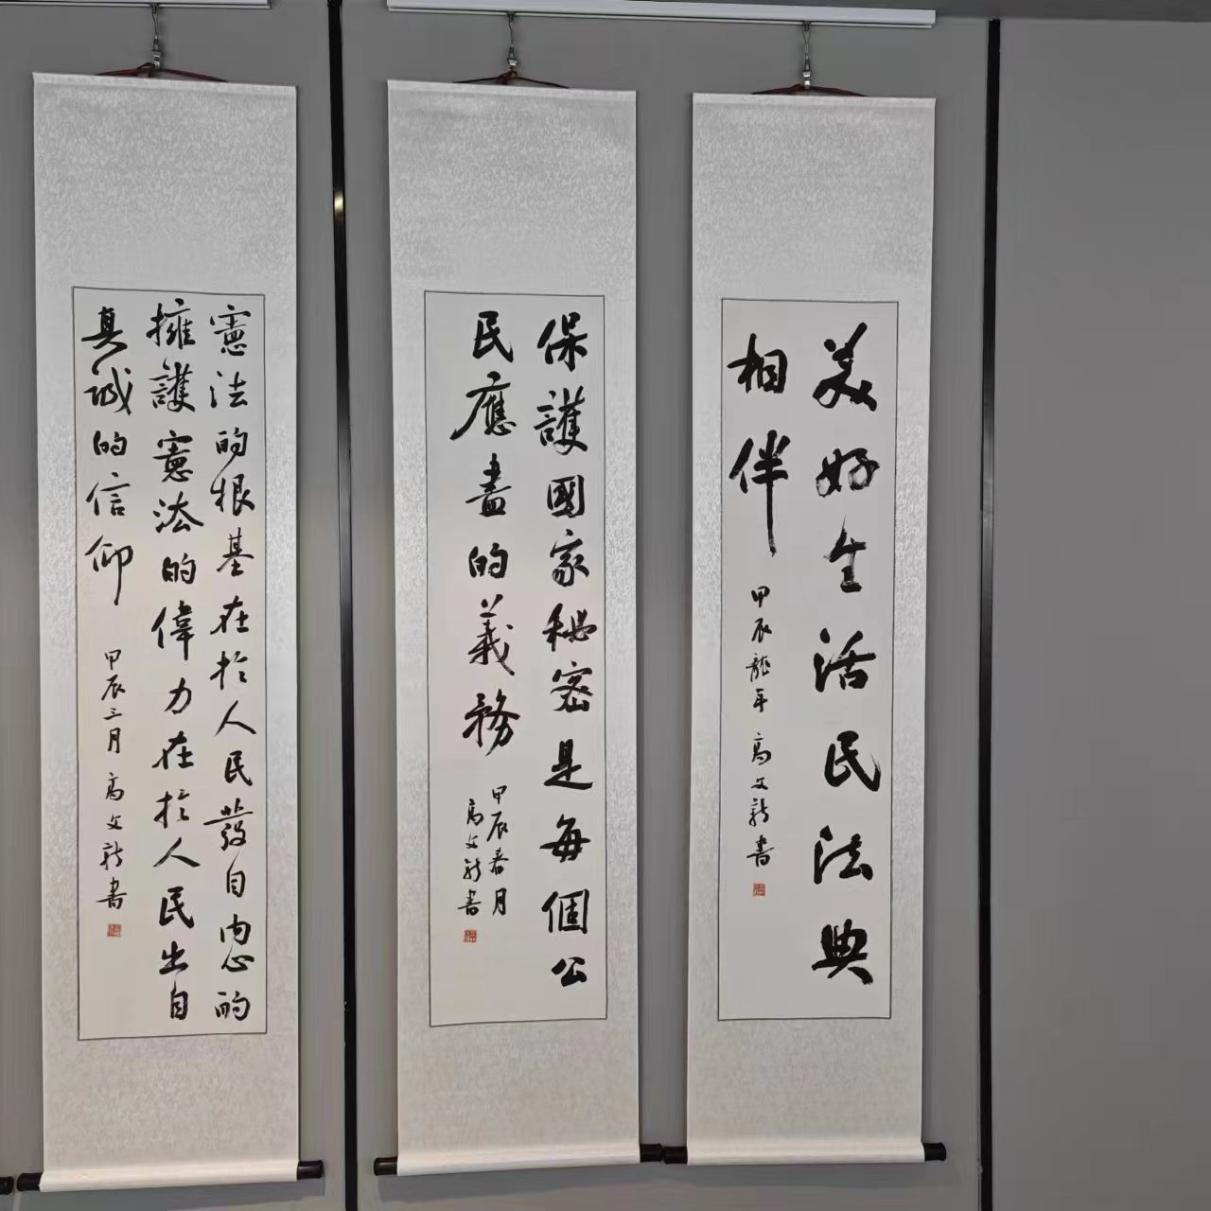 美好生活民法典
相伴 甲辰龍年 高文新書
保護國家秘密是每個公
民應盡的義務 甲辰春月
高文新書
憲法的根基在於人民發自内心的
擁護憲法的偉力在於人民出自
真誠的信仰 甲辰三月 高文新書